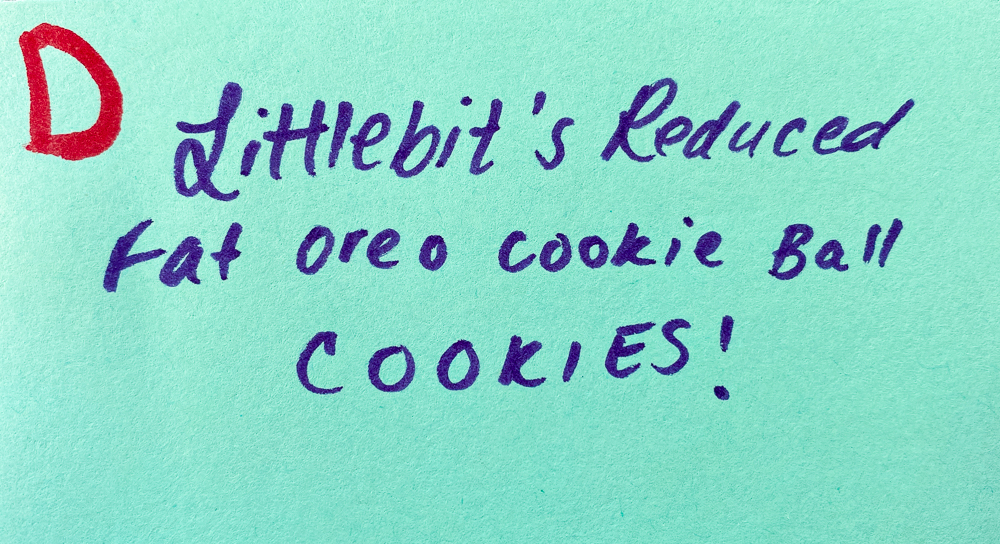 D
Littlebit's Reduced
Fat oreo cookie Ball
COOKIES!